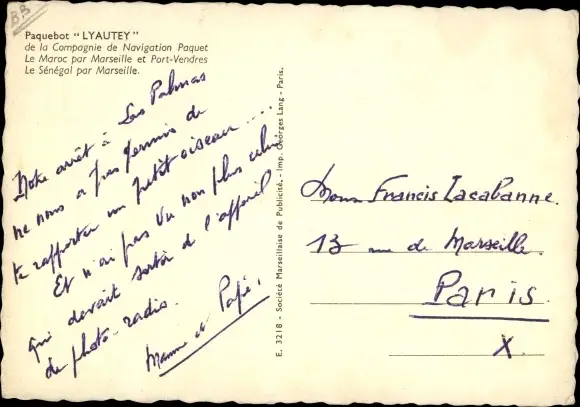 BB
Paquebot " LYAUTEY "
de la Compagnie de Navigation Paquet
Le Maroc par Marseille et Port-Vendres
Le Sénégal par Marseille.
Notre arrêt à Las Palmas
ne nous a pas permis de
te rapporter un petit oiseau ....
Et n'ai pas vu non plus celui
qui devait sortir de l'appareil
de photo-radio.
Mamie et Papé.
E. 3218 - Société Marseillaise de Publicité. - Imp. Georges Lang - Paris.
Francis Lacabanne.
13 rue de Marseille.
Paris.
X.